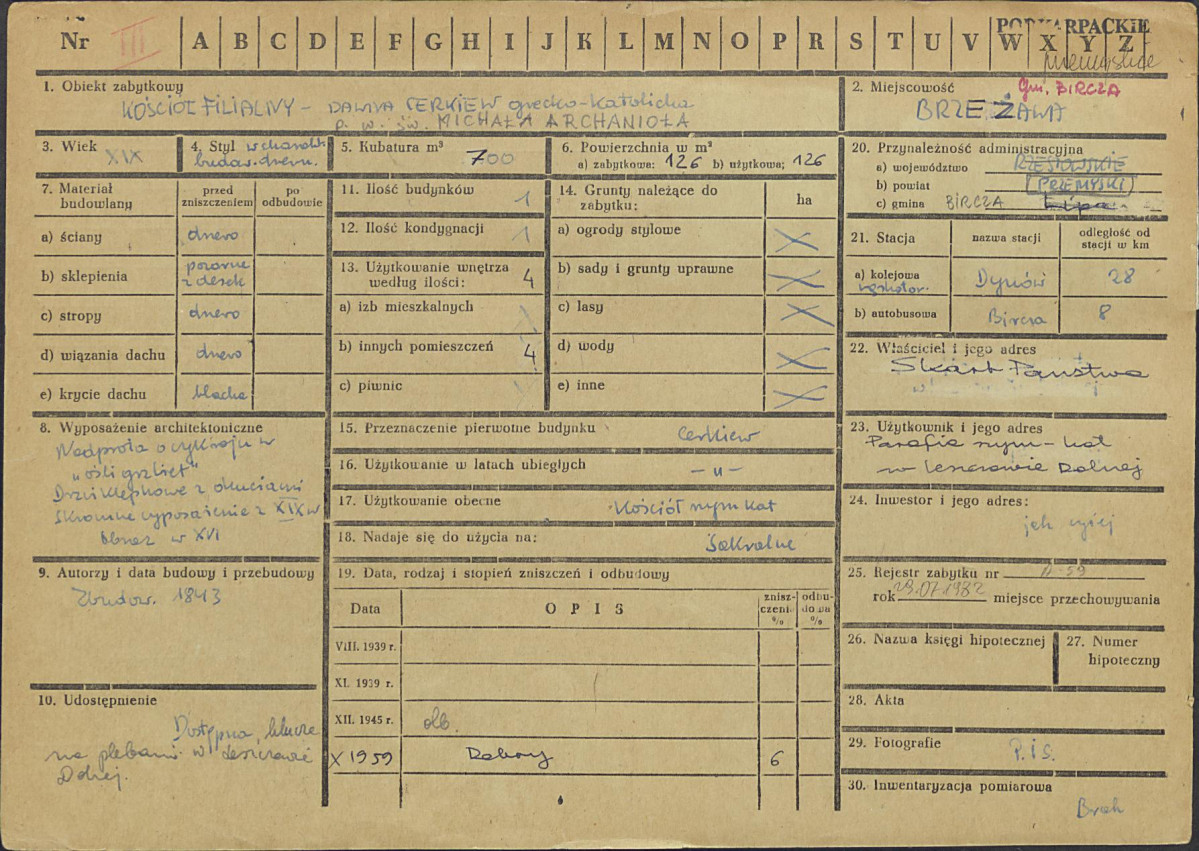 PODKARPACKIE
przemyskie
Nr III A B C D E F G H I J K L M N O P R S T U V W X Y Z
1. Obiekt zabytkowy
KOŚCIÓŁ FILIALNY – DAWNA CERKIEW grecko-katolicka
p. w. św. MICHAŁA ARCHANIOŁA
2. Miejscowość
Gm. BIRCZA
BRZEŻAWA
3. Wiek
XIX
4. Styl w charakt.
budow. drewn.
5. Kubatura m³
700
6. Powierzchnia w m²
a) zabytkowa: 126 b) użytkowa; 126
20. Przynależność administracyjna
a) województwo RZESZOWSKIE
b) powiat (PRZEMYSKI)
c) gmina BIRCZA Lipa
7. Materiał
budowlany
przed
zniszczeniem
po
odbudowie
a) ściany drewno
b) sklepienia pozorne
z desek
c) stropy drewno
d) wiązania dachu drewno
e) krycie dachu blacha
11. Ilość budynków 1
12. Ilość kondygnacji 1
13. Użytkowanie wnętrza
według ilości: 4
a) izb mieszkalnych \
b) innych pomieszczeń 4
c) piwnic \
14. Grunty należące do
zabytku:
ha
a) ogrody stylowe X
b) sady i grunty uprawne X
c) lasy X
d) wody X
e) inne X
21. Stacja
nazwa stacji
odległość od
stacji w km
a) kolejowa
wąskotor. Dynów 28
b) autobusowa Bircza 8
22. Właściciel i jego adres
Skarb Państwa
8. Wyposażenie architektoniczne
Nadproża o wykroju w
„ośli grzbiet"
Drzwi klepkowe z okuciami
Skromne wyposażenie z XIX w
obraz w XVI
15. Przeznaczenie pierwotne budynku cerkiew
16. Użytkowanie w latach ubiegłych – u –
17. Użytkowanie obecne Kościół rzym kat
18. Nadaje się do użycia na: Sakralne
23. Użytkownik i jego adres
Parafia rzym-kat
w Leszczawie Dolnej
24. Inwestor i jego adres:
jak wyżej
9. Autorzy i data budowy i przebudowy
Zbudow. 1843
19. Data, rodzaj i stopień zniszczeń i odbudowy
Data
OPIS
znisz-
czeni.
%
odbu-
dowa
%
VIII. 1939 r.
XI. 1939 r.
XII. 1945 r. olb.
X 1959 Dobry 6
25. Rejestr zabytku nr A-59
rok 29.07.1982 miejsce przechowywania
26. Nazwa księgi hipotecznej
27. Numer
hipoteczny
28. Akta
29. Fotografie P.I.S.
30. Inwentaryzacja pomiarowa
Brak
10. Udostępnienie
Dostępna, klucze
na plebanii w Leszczawie
Dolnej.